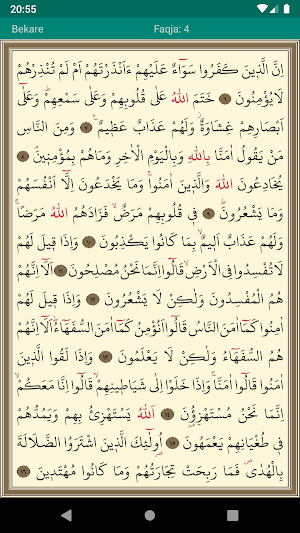 20:55
Bekare Faqja: 4
اِنَّ الَّذٖينَ كَفَرُوا سَوَٓاءٌ عَلَيْهِمْ ءَاَنْذَرْتَهُمْ اَمْ لَمْ تُنْذِرْهُمْ
لَا يُؤْمِنُونَ ﴿٦﴾ خَتَمَ اللّٰهُ عَلٰى قُلُوبِهِمْ وَعَلٰى سَمْعِهِمْ وَعَلٰٓى
اَبْصَارِهِمْ غِشَاوَةٌ وَلَهُمْ عَذَابٌ عَظٖيمٌ ﴿٧﴾ وَمِنَ النَّاسِ
مَنْ يَقُولُ اٰمَنَّا بِاللّٰهِ وَبِالْيَوْمِ الْاٰخِرِ وَمَا هُمْ بِمُؤْمِنٖينَ ﴿٨﴾
يُخَادِعُونَ اللّٰهَ وَالَّذٖينَ اٰمَنُوا وَمَا يَخْدَعُونَ اِلَّٓا اَنْفُسَهُمْ
وَمَا يَشْعُرُونَ ﴿٩﴾ فٖى قُلُوبِهِمْ مَرَضٌ فَزَادَهُمُ اللّٰهُ مَرَضًا
وَلَهُمْ عَذَابٌ اَلٖيمٌ بِمَا كَانُوا يَكْذِبُونَ ﴿١٠﴾ وَاِذَا قٖيلَ لَهُمْ
لَا تُفْسِدُوا فِى الْاَرْضِ قَالُٓوا اِنَّمَا نَحْنُ مُصْلِحُونَ ﴿١١﴾ اَلَٓا اِنَّهُمْ
هُمُ الْمُفْسِدُونَ وَلٰكِنْ لَا يَشْعُرُونَ ﴿١٢﴾ وَاِذَا قٖيلَ لَهُمْ
اٰمِنُوا كَمَٓا اٰمَنَ النَّاسُ قَالُٓوا اَنُؤْمِنُ كَمَٓا اٰمَنَ السُّفَهَٓاءُ اَلَٓا اِنَّهُمْ
هُمُ السُّفَهَٓاءُ وَلٰكِنْ لَا يَعْلَمُونَ ﴿١٣﴾ وَاِذَا لَقُوا الَّذٖينَ
اٰمَنُوا قَالُٓوا اٰمَنَّا وَاِذَا خَلَوْا اِلٰى شَيَاطٖينِهِمْ قَالُٓوا اِنَّا مَعَكُمْ
اِنَّمَا نَحْنُ مُسْتَهْزِؤُنَ ﴿١٤﴾ اَللّٰهُ يَسْتَهْزِئُ بِهِمْ وَيَمُدُّهُمْ
فٖى طُغْيَانِهِمْ يَعْمَهُونَ ﴿١٥﴾ اُولٰٓئِكَ الَّذٖينَ اشْتَرَوُا الضَّلَالَةَ
بِالْهُدٰى فَمَا رَبِحَتْ تِجَارَتُهُمْ وَمَا كَانُوا مُهْتَدٖينَ ﴿١٦﴾